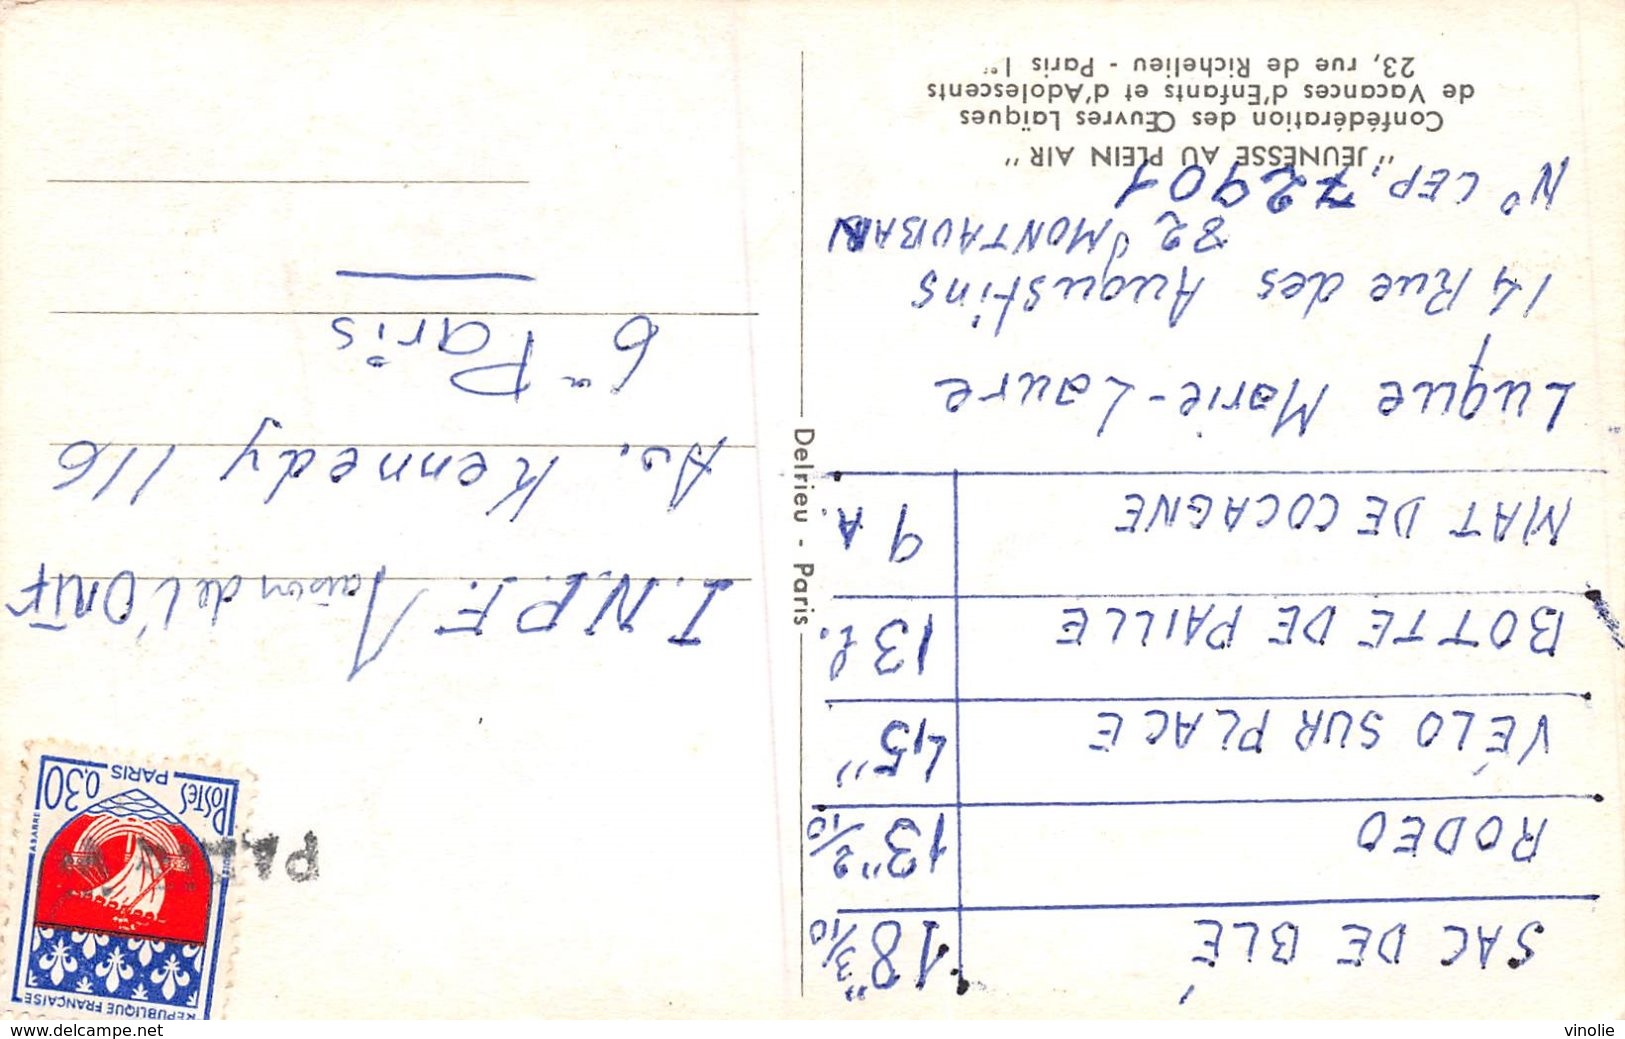 SAC DE BLÉ 18"3/10
RODEO 13"2/10
VÉLO SUR PLACE 45"
BOTTE DE PAILLE 13 l.
MAT DE COCAGNE 9 A.
Luque Marie-Laure
14 Rue des Augustins
82 MONTAUBAN
N° CEP. 72901
"JEUNESSE AU PLEIN AIR"
Confédération des Œuvres Laïques
de Vacances d'Enfants et d'Adolescents
23, rue de Richelieu - Paris 1er
Delrieu - Paris
REPUBLIQUE FRANÇAISE
POSTES
0,30
PARIS
I.N.P.F. Maison de l'ORTF
Av. Kennedy 116
6e Paris
www.delcampe.net
vinolie